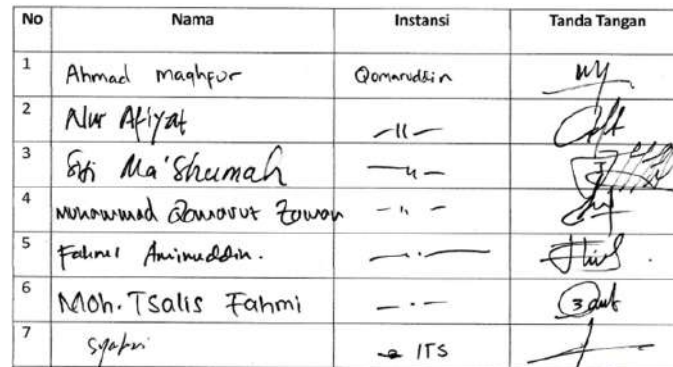 No Nama Instansi Tanda Tangan
1 Ahmad Maghfur Qomaruddin
2 Nur Afiyat -〃-
3 Siti Ma'Shumah -〃-
4 Muhammad Qomarut Zaman -〃-
5 Fahmi Aminuddin. -〃-
6 Moh. Tsalis Fahmi -〃-
7 Syafri ITS